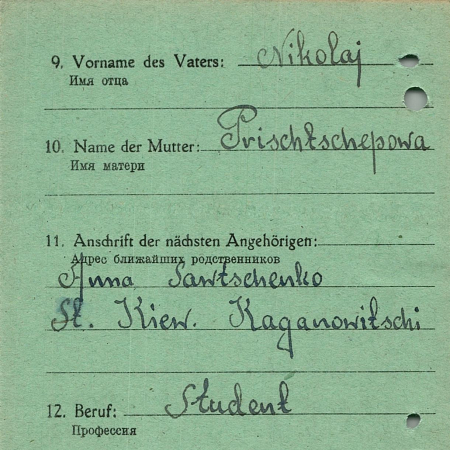 9. Vorname des Vaters: Nikolaj
Имя отца
10. Name der Mutter: Prischtschepowa
Имя матери
11. Anschrift der nächsten Angehörigen:
Адрес ближайших родственников
Anna Sawtschenko
St. Kiew. Kaganowitschi
12. Beruf: Student
Профессия